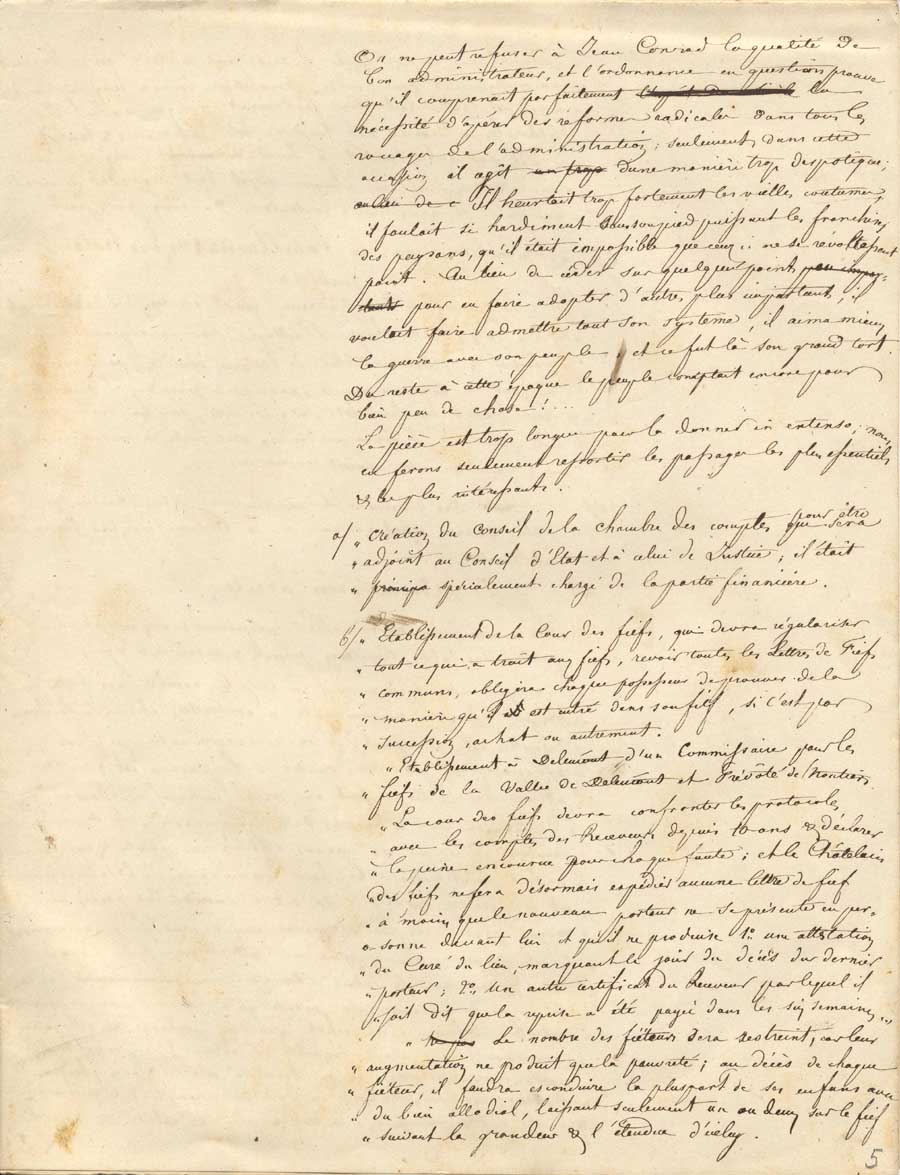 On ne peut refuser à Jean Conrad la qualité de
bon administrateur, et l'ordonnance en question prouve
qu'il comprenait parfaitement la
nécessité d'opérer des reformes radicales dans tous les
rouages de l'administration; seulement dans cette
occasion il agit un trop d'une manière trop despotique;
au lieu de c Il heurtait trop fortement les vielles coutumes,
il foulait si hardiment sous son pied puissant les franchises
des paysans, qu'il était impossible que ceux ci ne se révoltassent
point. Au lieu de céder sur quelques points peu impor-
tants pour en faire adopter d'autres plus importants, il
voulait faire admettre tout son système, il aima mieux
la guerre avec son peuple, et ce fut là son grand tort.
Du reste à cette époque le peuple comptait encore pour
bien peu de chose!...
La pièce est trop longue pour la donner in extenso; nous
en ferons seulement ressortir les passages les plus essentiels
& les plus intéressants.
a/ " Création du Conseil de la chambre des comptes pour être qui sera
" adjoint au Conseil d'Etat et à celui de Justice; il était
" principa spécialement chargé de la partie financière.
b/ " Etablissement de la Cour des fiefs, qui devra régulariser
" tout ce qui a trait aux fiefs, revoir toutes les Lettres de Fiefs
" communs, obligera chaque possesseur de prouver de la
" manière qu'il est entré dans son fief, si c'est par
" succession, achat ou autrement.
" Etablissement à Delémont d'un Commissaire pour les
" fiefs de la Vallée de Delémont et Prévôté de Moutiers
" La cour des fiefs devra confronter les protocoles
" avec les comptes des Receveurs depuis 10 ans & déclarer
" la peine encourue pour chaque faute; et le Châtelain
" des fiefs ne fera désormais expédier aucune lettre de fief
" à moins que le nouveau porteur ne se présente en per-
" sonne devant lui et qu'il ne produise 1° une attestation
" du Curé du lieu, marquant le jour du décès du dernier
" porteur; 2° Un autre certificat du Receveur par lequel il
" soit dit que la reprise a été payée dans les six semaines
" Le nombre des fiéteurs sera restreint, car leur
" augmentation ne produit que la pauvreté; au décès de chaque
" fiéteur, il faudra esconduire la pluspart de ses enfans avec
" du bien allodial, laissant seulement un ou deux sur le fief
" suivant la grandeur & l'étendue d'icelui.
5